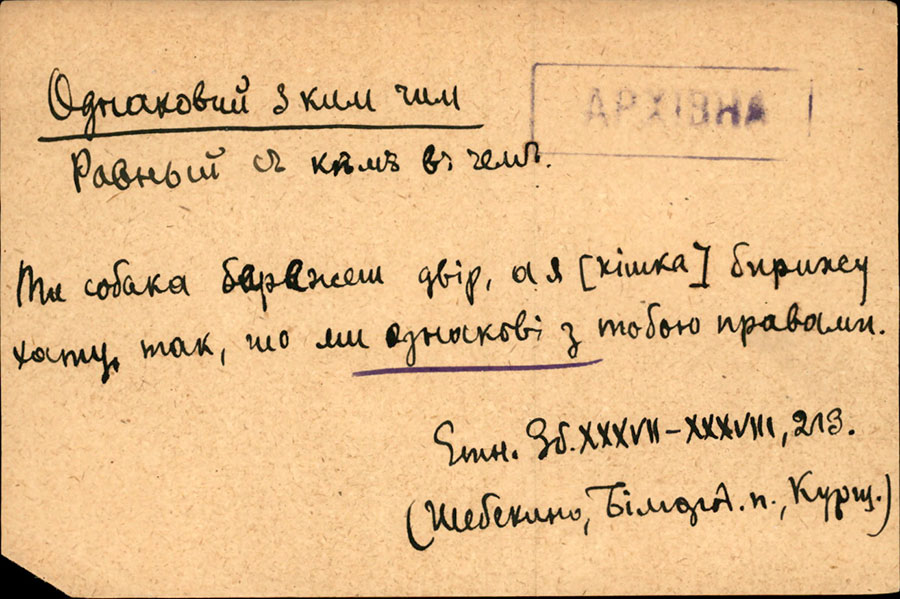 Однаковий з ким чим
АРХІВНА
Равный съ кѣмъ въ чемъ.
Ти собака барежеш двір, а я [кішка] бирижу
хату, так, що ми однакові з тобою правами.
Етн. Зб. XXXVII–XXXVIII, 213.
(Шебекино, п., Курщ.)